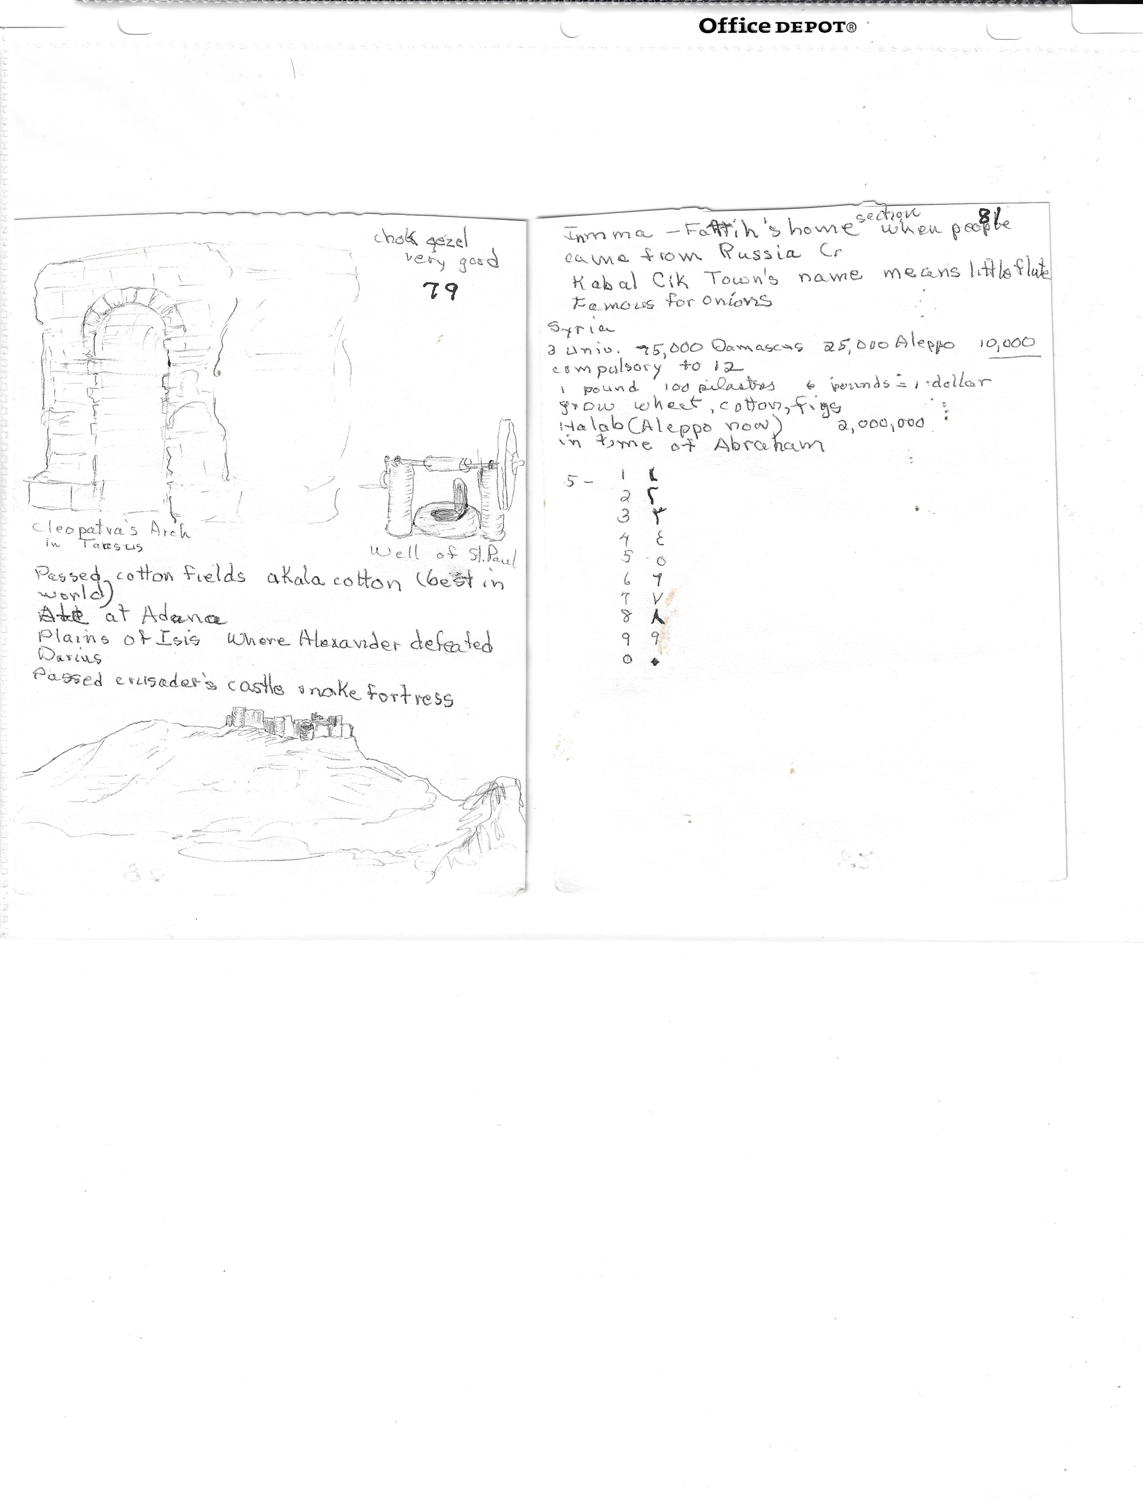 Office DEPOT®
chok gezel
very good
79
Cleopatra's Arch
in Tarsus
Well of St. Paul
Passed cotton fields akala cotton (best in
world)
Ate at Adana
Plains of Isis where Alexander defeated
Darius
Passed crusader's castle snake fortress
81
Imma - Fattih's home section when people
came from Russia Cr
Kabal Cik Town's name means little flute
Famous for onions
Syria
3 Univ. 75,000 Damascus 25,000 Aleppo 10,000
compulsory to 12
1 pound 100 pilastres 6 pounds = 1 dollar
grow wheet, cotton, figs
Halab (Aleppo now) 2,000,000
in time of Abraham
5 - 1 ١
2 ٢
3 ٣
4 ٤
5 ٥
6 ٦
7 ٧
8 ٨
9 ٩
0 ٠